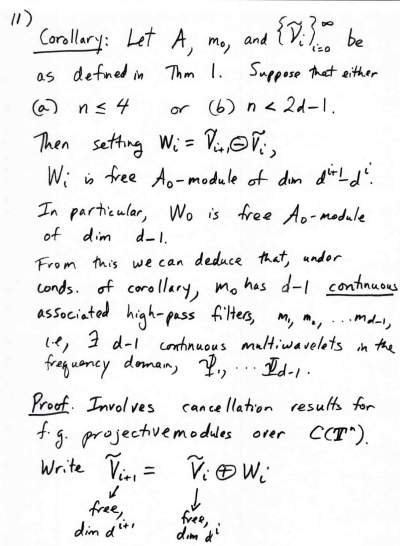 11)
Corollary: Let A, m₀, and {Ṽᵢ}ᵢ₌₀^∞ be
as defined in Thm 1. Suppose that either
(a) n ≤ 4 or (b) n < 2d-1.
Then setting Wᵢ = Ṽᵢ₊₁ ⊖ Ṽᵢ,
Wᵢ is free A₀-module of dim dⁱ⁺¹-dⁱ.
In particular, W₀ is free A₀-module
of dim d-1.
From this we can deduce that, under
conds. of corollary, m₀ has d-1 continuous
associated high-pass filters, m₁, m₂, ... m_{d-1},
i.e, ∃ d-1 continuous multiwavelets in the
frequency domain, Ψ₁, ... Ψ_{d-1}.
Proof. Involves cancellation results for
f.g. projective modules over C(𝕋ⁿ).
Write Ṽᵢ₊₁ = Ṽᵢ ⊕ Wᵢ
↓ ↓
free, free,
dim dⁱ⁺¹ dim dⁱ